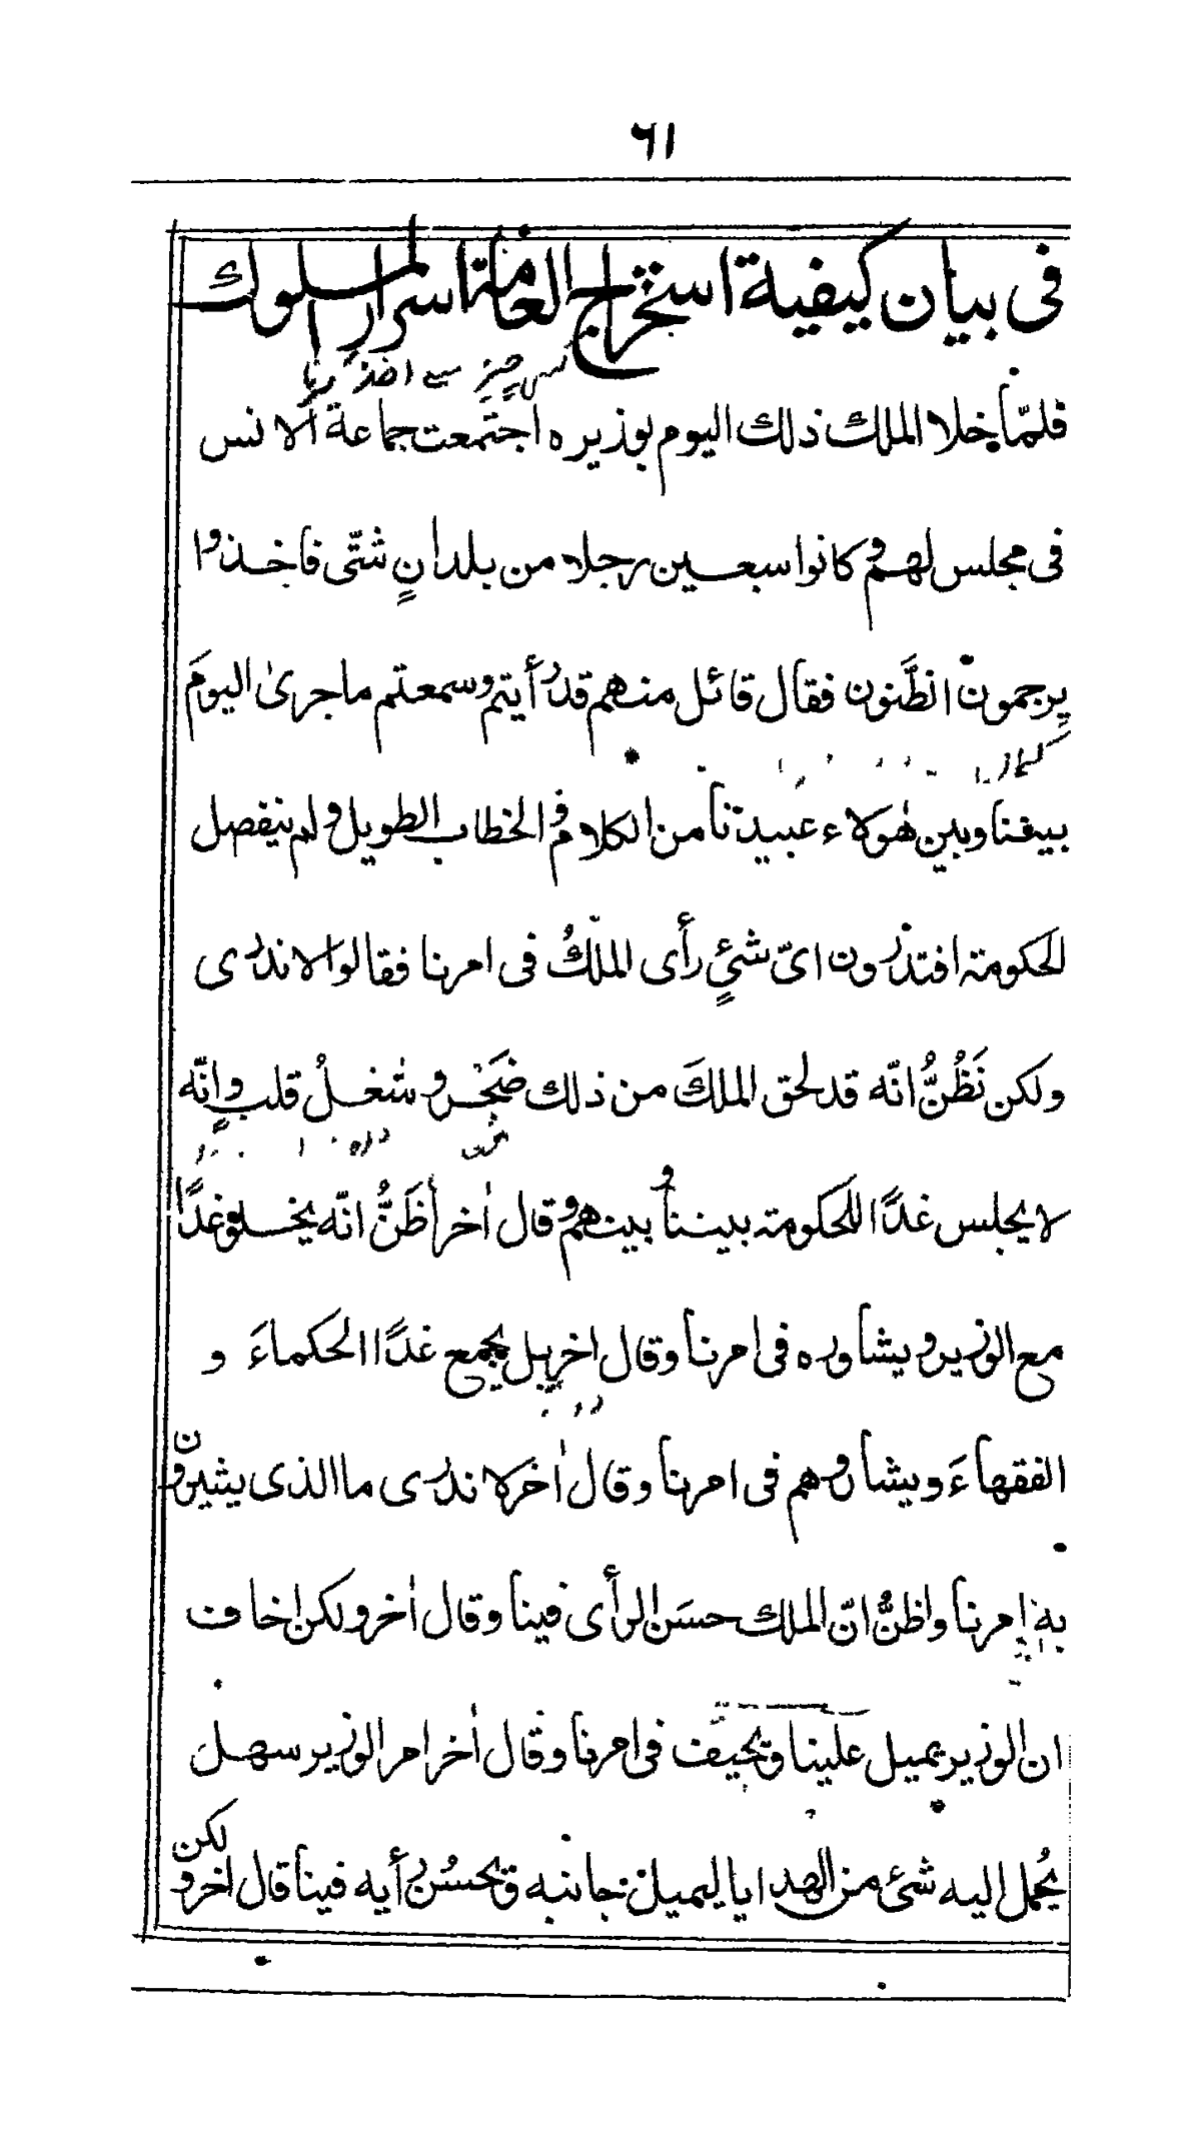 ٦١
فى بيان كيفية استخراج العامة اسرار الملوك
كسى چيز سے اخذ كرنا
فلمّا خلا الملك ذلك اليوم بوزيره اجتمعت جماعة الانس
فى مجلس لهم و كانوا سبعين رجلا من بلدانٍ شتّى فاخذوا
يرجمون الظَّنون فقال قائل منهم قد رأيتم وسمعتم ما جرىٰ اليومَ
بيننا وبين هٰولاء عبيدنا من الكلام و الخطاب الطويل و لم ينفصل
الحكومة افتدرون اىّ شئٍ رأى الملكُ فى امرنا فقالوا لا ندرى
ولكن نَظُنُّ انّه قد لحق الملكَ من ذلك ضَجْر و شغلُ قلب وإنّه
لا يجلس غدًا للحكومة بيننا و بينهم و قال اٰخر أظَنُّ انّه يخلو غدًا
مع الوزير و يشاوره فى امرنا وقال اخر بل يجمع غدًا الحكماءَ و
الفقهاءَ ويشاورهم فى امرنا وقال اٰخر لا ندرى ما الذى يشيرون
به امرنا واظنُّ انّ الملك حسَن الرأى فينا وقال اٰخر ولكن اخاف
ان الوزير يميل علينا و يحيف فى امرنا وقال اٰخر امر الوزير سهل
يُحمل اليه شئ من الهدايا ليميل جانبه و يحسُن رأيه فينا قال اٰخر و لكن